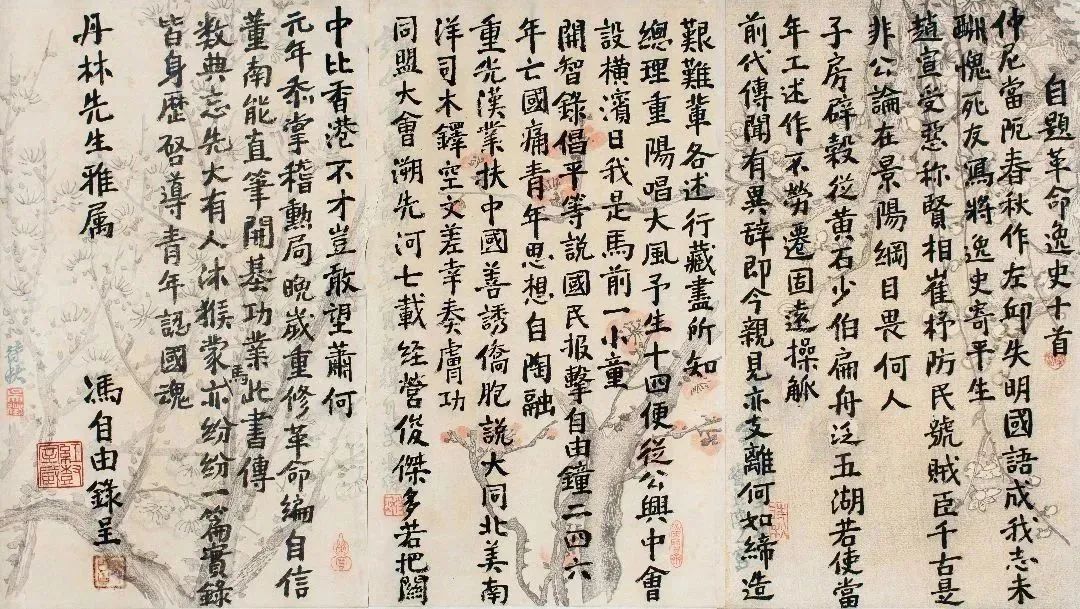 自題革命逸史十首
仲尼當阨春秋作左邱失明國語成我志未
酬愧死友寫將逸史寄平生
趙宣受惡稱賢相崔杼防民號賊臣千古是
非公論在景陽綱目畏何人
子房辟穀從黄石少伯扁舟泛五湖若使當
年工述作不勞遷固遠操觚
前代傳聞有異辭即今親見亦支離何如締造
艱難輩各述行藏盡所知
總理重陽唱大風予生十四便從公興中會
設橫濱日我是馬前一小童
開智錄倡平等說國民报擊自由鐘二四六
年亡國痛青年思想自陶融
重光漢業扶中國善誘僑胞說大同北美南
洋司木鐸空文差幸奏膚功
同盟大會溯先河七載经營俊傑多若把關
中比香港不才豈敢望蕭何
元年忝掌稽勳局晚歲重修革命編自信
董南能直筆開基功業此書傳
数典忘先大有人沐猴蒙馬亦紛紛一篇實錄
皆身歷啓導青年認國魂
丹林先生雅属
馮自由錄呈